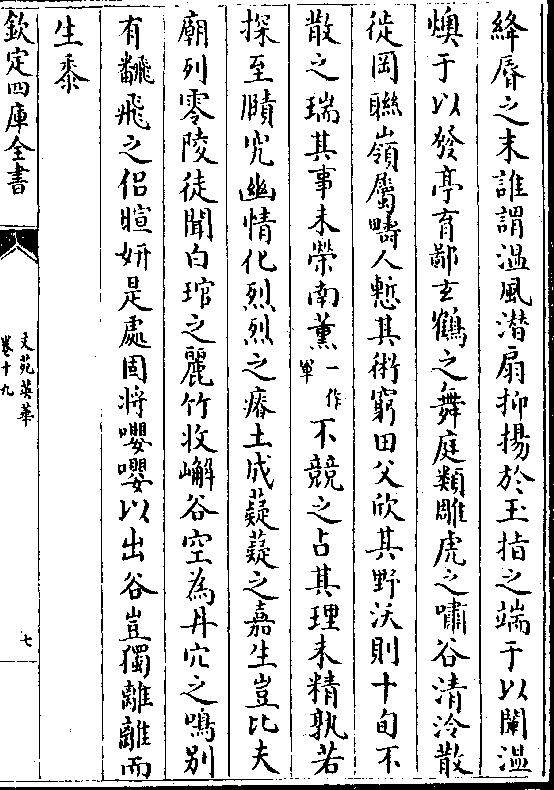 絳脣之末誰謂温風潛扇抑揚於玉指之端于以闡温
燠于以發亭育鄙玄鶴之舞庭類雕虎之嘯谷清泠散
徙岡聯嶺屬疇人慙其術窮田父欣其野沃則十旬不
散之瑞其事未榮南薫一作軍不競之占其理未精孰若
探至賾究幽情化烈烈之瘠土成薿薿之嘉生豈比夫
廟列零陵徒聞白琯之麗竹收嶰谷空為丹穴之鳴別
有翻飛之侣暄妍是處固將嚶嚶以出谷豈獨離離而
生黍
欽定四庫全書
文苑英華
卷十九
七